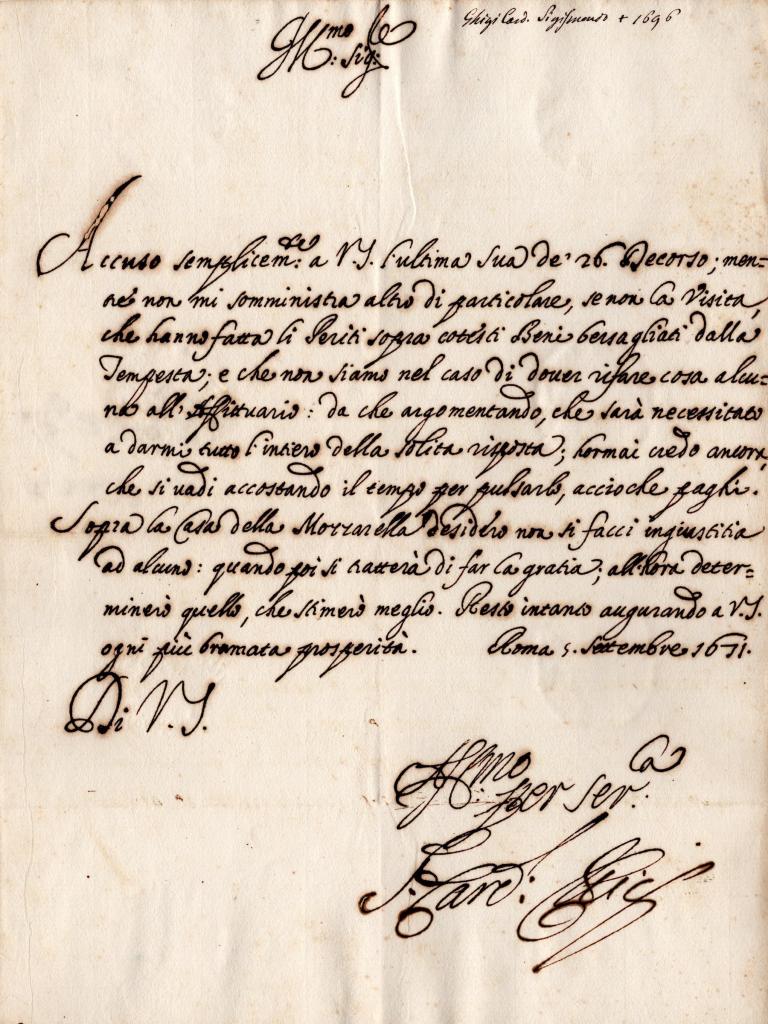 Ghigi Card. Sigismondo + 1696
Ill:mo Sig:re
Accuso semplicem:te a V.S. l'ultima sua de' 26. Decorso; men=
tre non mi somministra altro di particolare, se non la Visita,
che hanno fatta li Periti sopra cotesti Beni bersagliati dalla
Tempesta; e che non siamo nel caso di dover rifare cosa alcu=
na all'Affittuario: da che argomentando, che sarà necessitato
a darmi tutto l'intiero della solita risposta; hormai credo ancora,
che si vadi accostando il tempo per pulsarlo, accioche paghi.
Sopra la Casa della Mozzarella desidero non si facci ingiustitia
ad alcuno: quando poi si tratterà di far la gratia; all'hora deter=
minerò quello, che stimerò meglio. Resto intanto augurando a V.S.
ogni più bramata prosperità. Roma 5. Settembre 1671.
Di V.S.
Aff:mo per ser:la
S. Card: Chigi